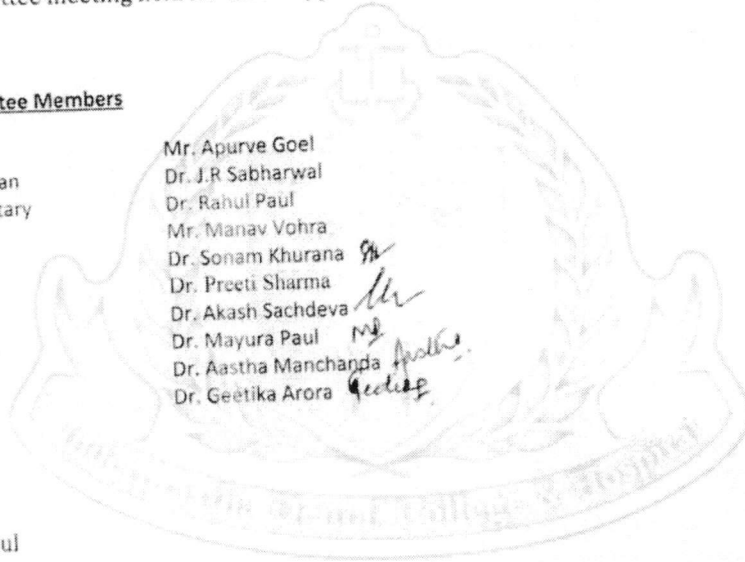 ttee meeting
tee Members
Mr. Apurve Goel
an Dr. J.R Sabharwal
tary Dr. Rahul Paul
Mr. Manav Vohra
Dr. Sonam Khurana
Dr. Preeti Sharma
Dr. Akash Sachdeva
Dr. Mayura Paul
Dr. Aastha Manchanda Aastha
Dr. Geetika Arora Geetika
Dental College & Hospital
ul